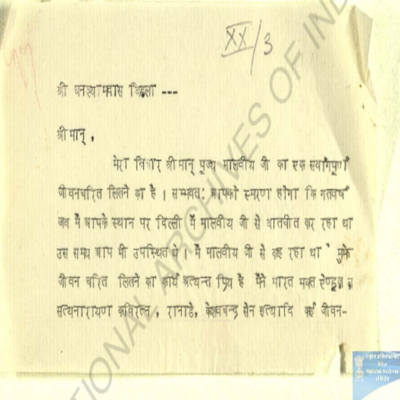 XX/3
श्री घनश्यामदास बिड़ला ---
श्रीमान् ,
मेरा विचार श्रीमान् पूज्य मालवीय जी का एक सर्वांगपूर्ण
जीवनचरित लिखने का है । सम्भवत: आपको स्मरण होगा कि गतवर्ष
जब मैं आपके स्थान पर दिल्ली में मालवीय जी से बातचीत कर रहा था
उस समय आप भी उपस्थित थे । मैं मालवीय जी से कह रहा था मुझे
जीवन चरित लिखने का कार्य अत्यन्त प्रिय है मैंने भारत भक्त ऐण्ड्रूज
सत्यनारायण कविरत्न , रानाडे, केशवचन्द्र सेन इत्यादि कई जीवन-
NATIONAL ARCHIVES OF IND